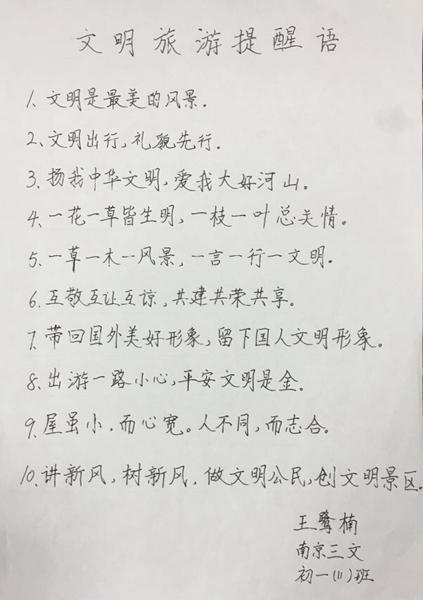 文明旅游提醒语
1、文明是最美的风景.
2、文明出行,礼貌先行.
3、扬我中华文明,爱我大好河山。
4、一花一草皆生明,一枝一叶总关情。
5、一草一木一风景,一言一行一文明.
6、互敬互让互谅,共建共荣共享。
7、带回国外美好形象,留下国人文明形象。
8、出游一路小心,平安文明是金.
9、屋虽小.而心宽。人不同,而志合。
10、讲新风,树新风.做文明公民,创文明景区.
王鹭楠
南京三文
初一(11)班